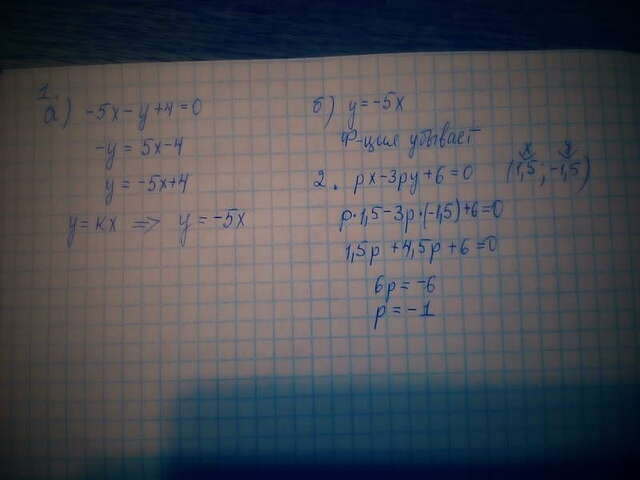 1.
а) -5x-y+4=0
-y=5x-4
y=-5x+4
y=kx => y=-5x
б) y=-5x
Ф-ция убывает
2. px-3py+6=0
x y
(1,5; -1,5)
p·1,5-3p·(-1,5)+6=0
1,5p+4,5p+6=0
6p=-6
p=-1